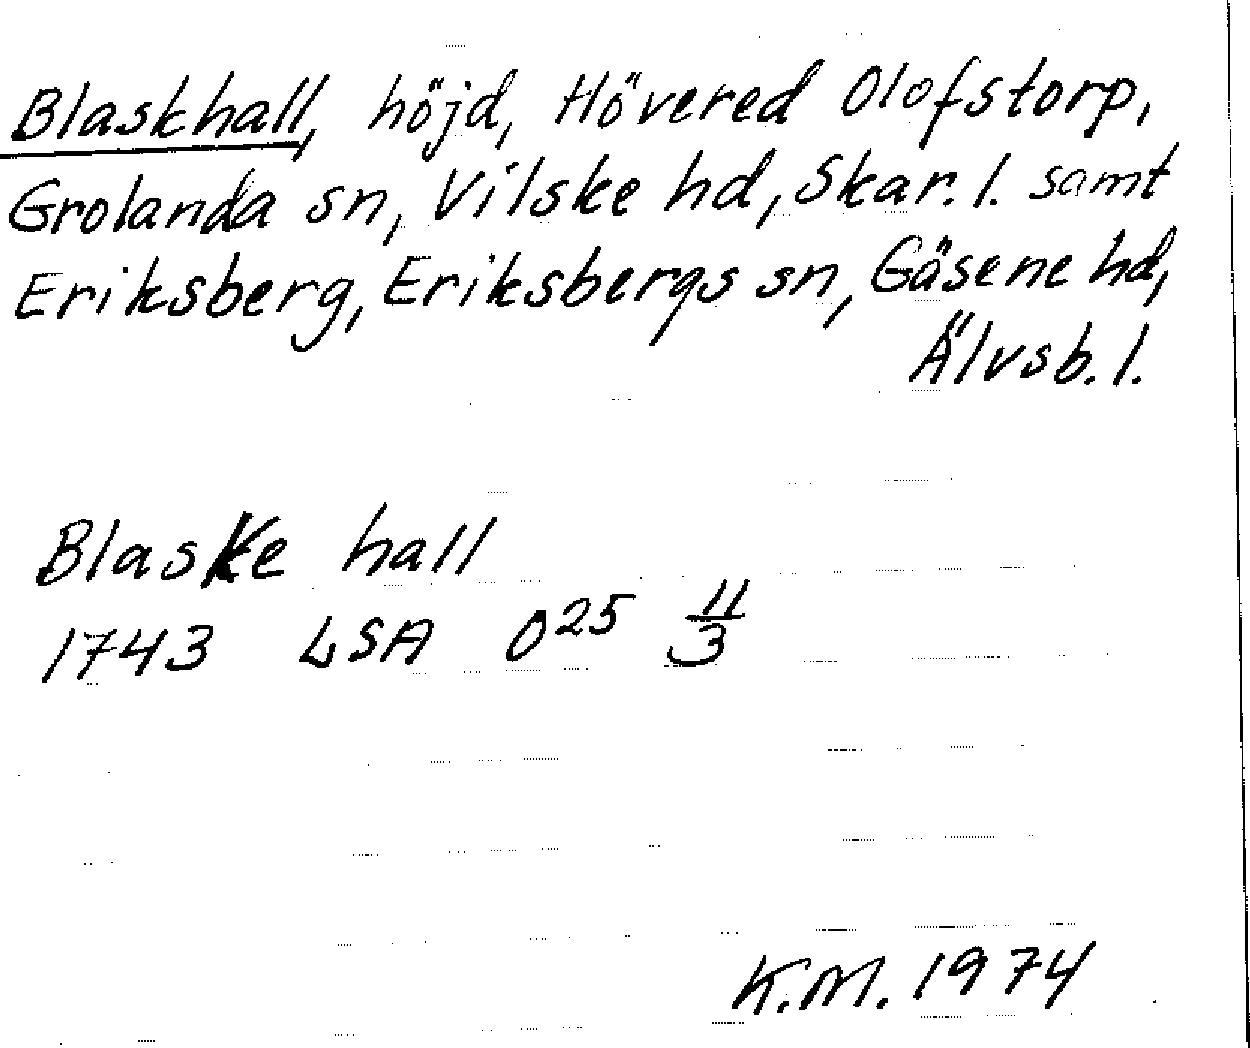 Blaskhall, höjd, Hövered Olofstorp,
Grolanda sn, Vilske hd, Skar. l. samt
Eriksberg, Eriksbergs sn, Gäsene hd,
Älvsb. l.
Blaske hall
1743 LSA O25 11/3
K.M. 1974